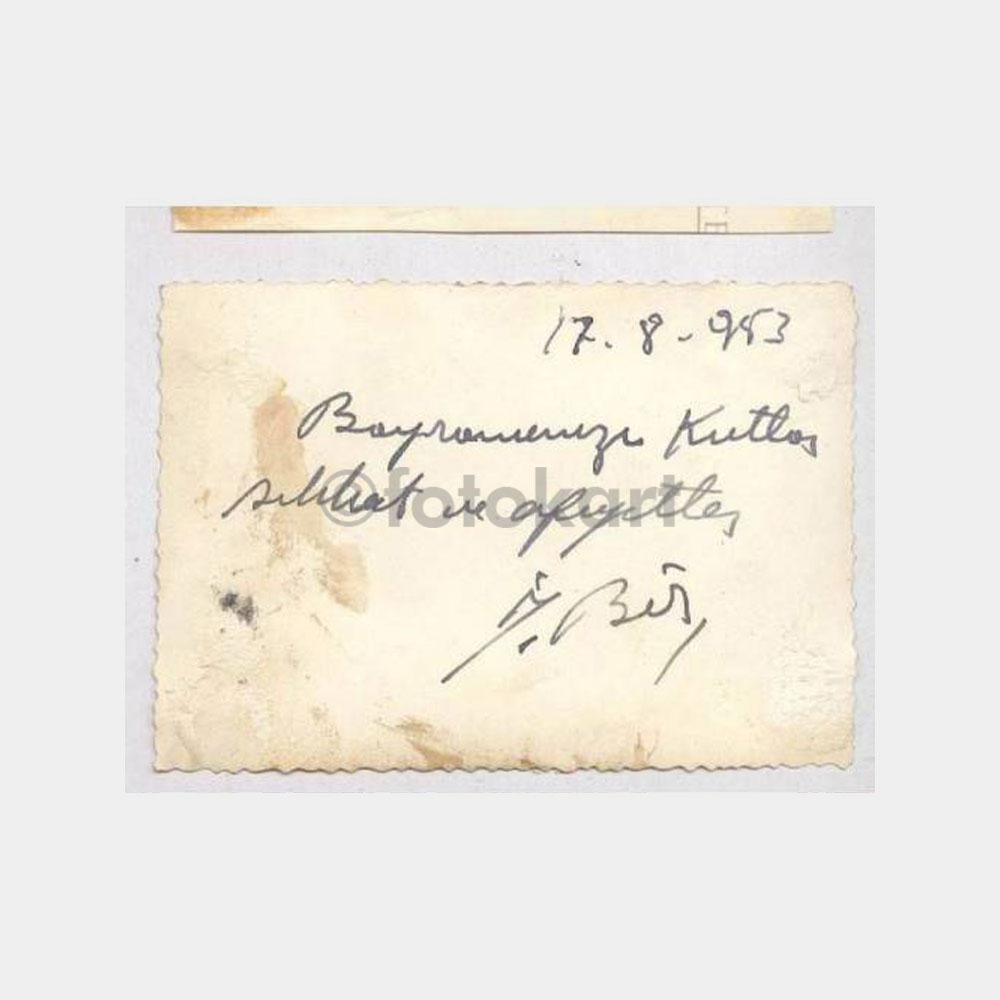 17.8-953
Bayramınızı Kutlar
sıhhat ve afiyetler
©fotokart